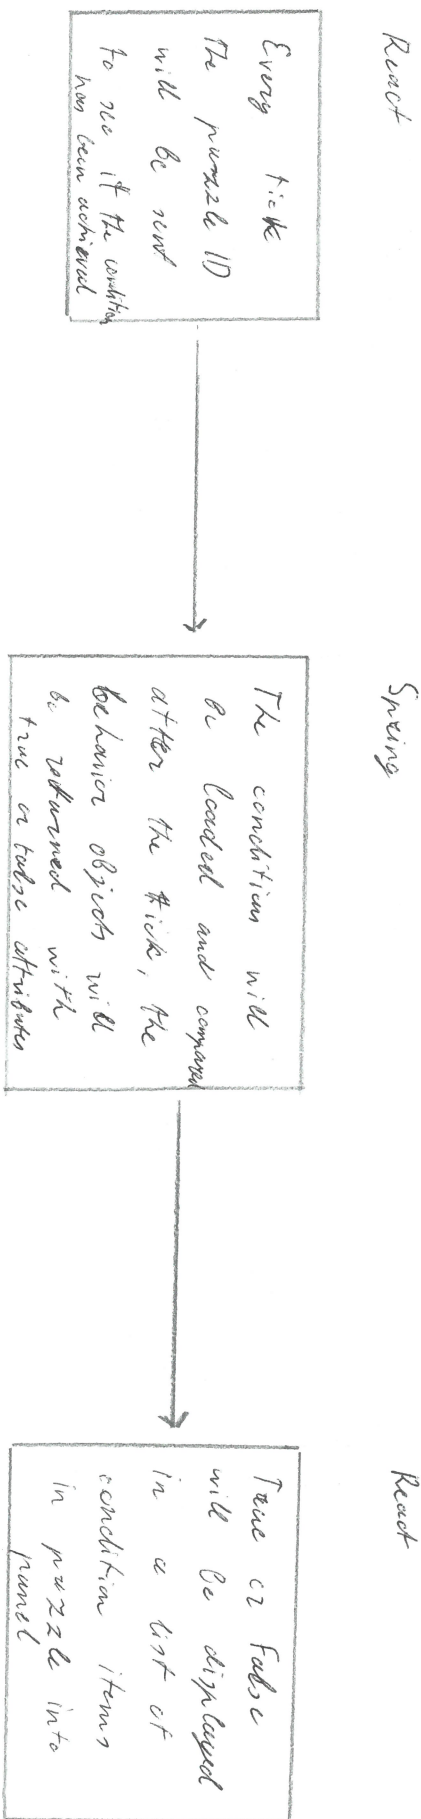 React
Every tick
The puzzle ID
will be sent
to see if the condition
has been achieved
Spring
The conditions will
be loaded and compared
after the tick, the
behavior objects will
be returned with
true or false attributes
React
True or False
will be displayed
in a list of
condition items
in puzzle info
panel